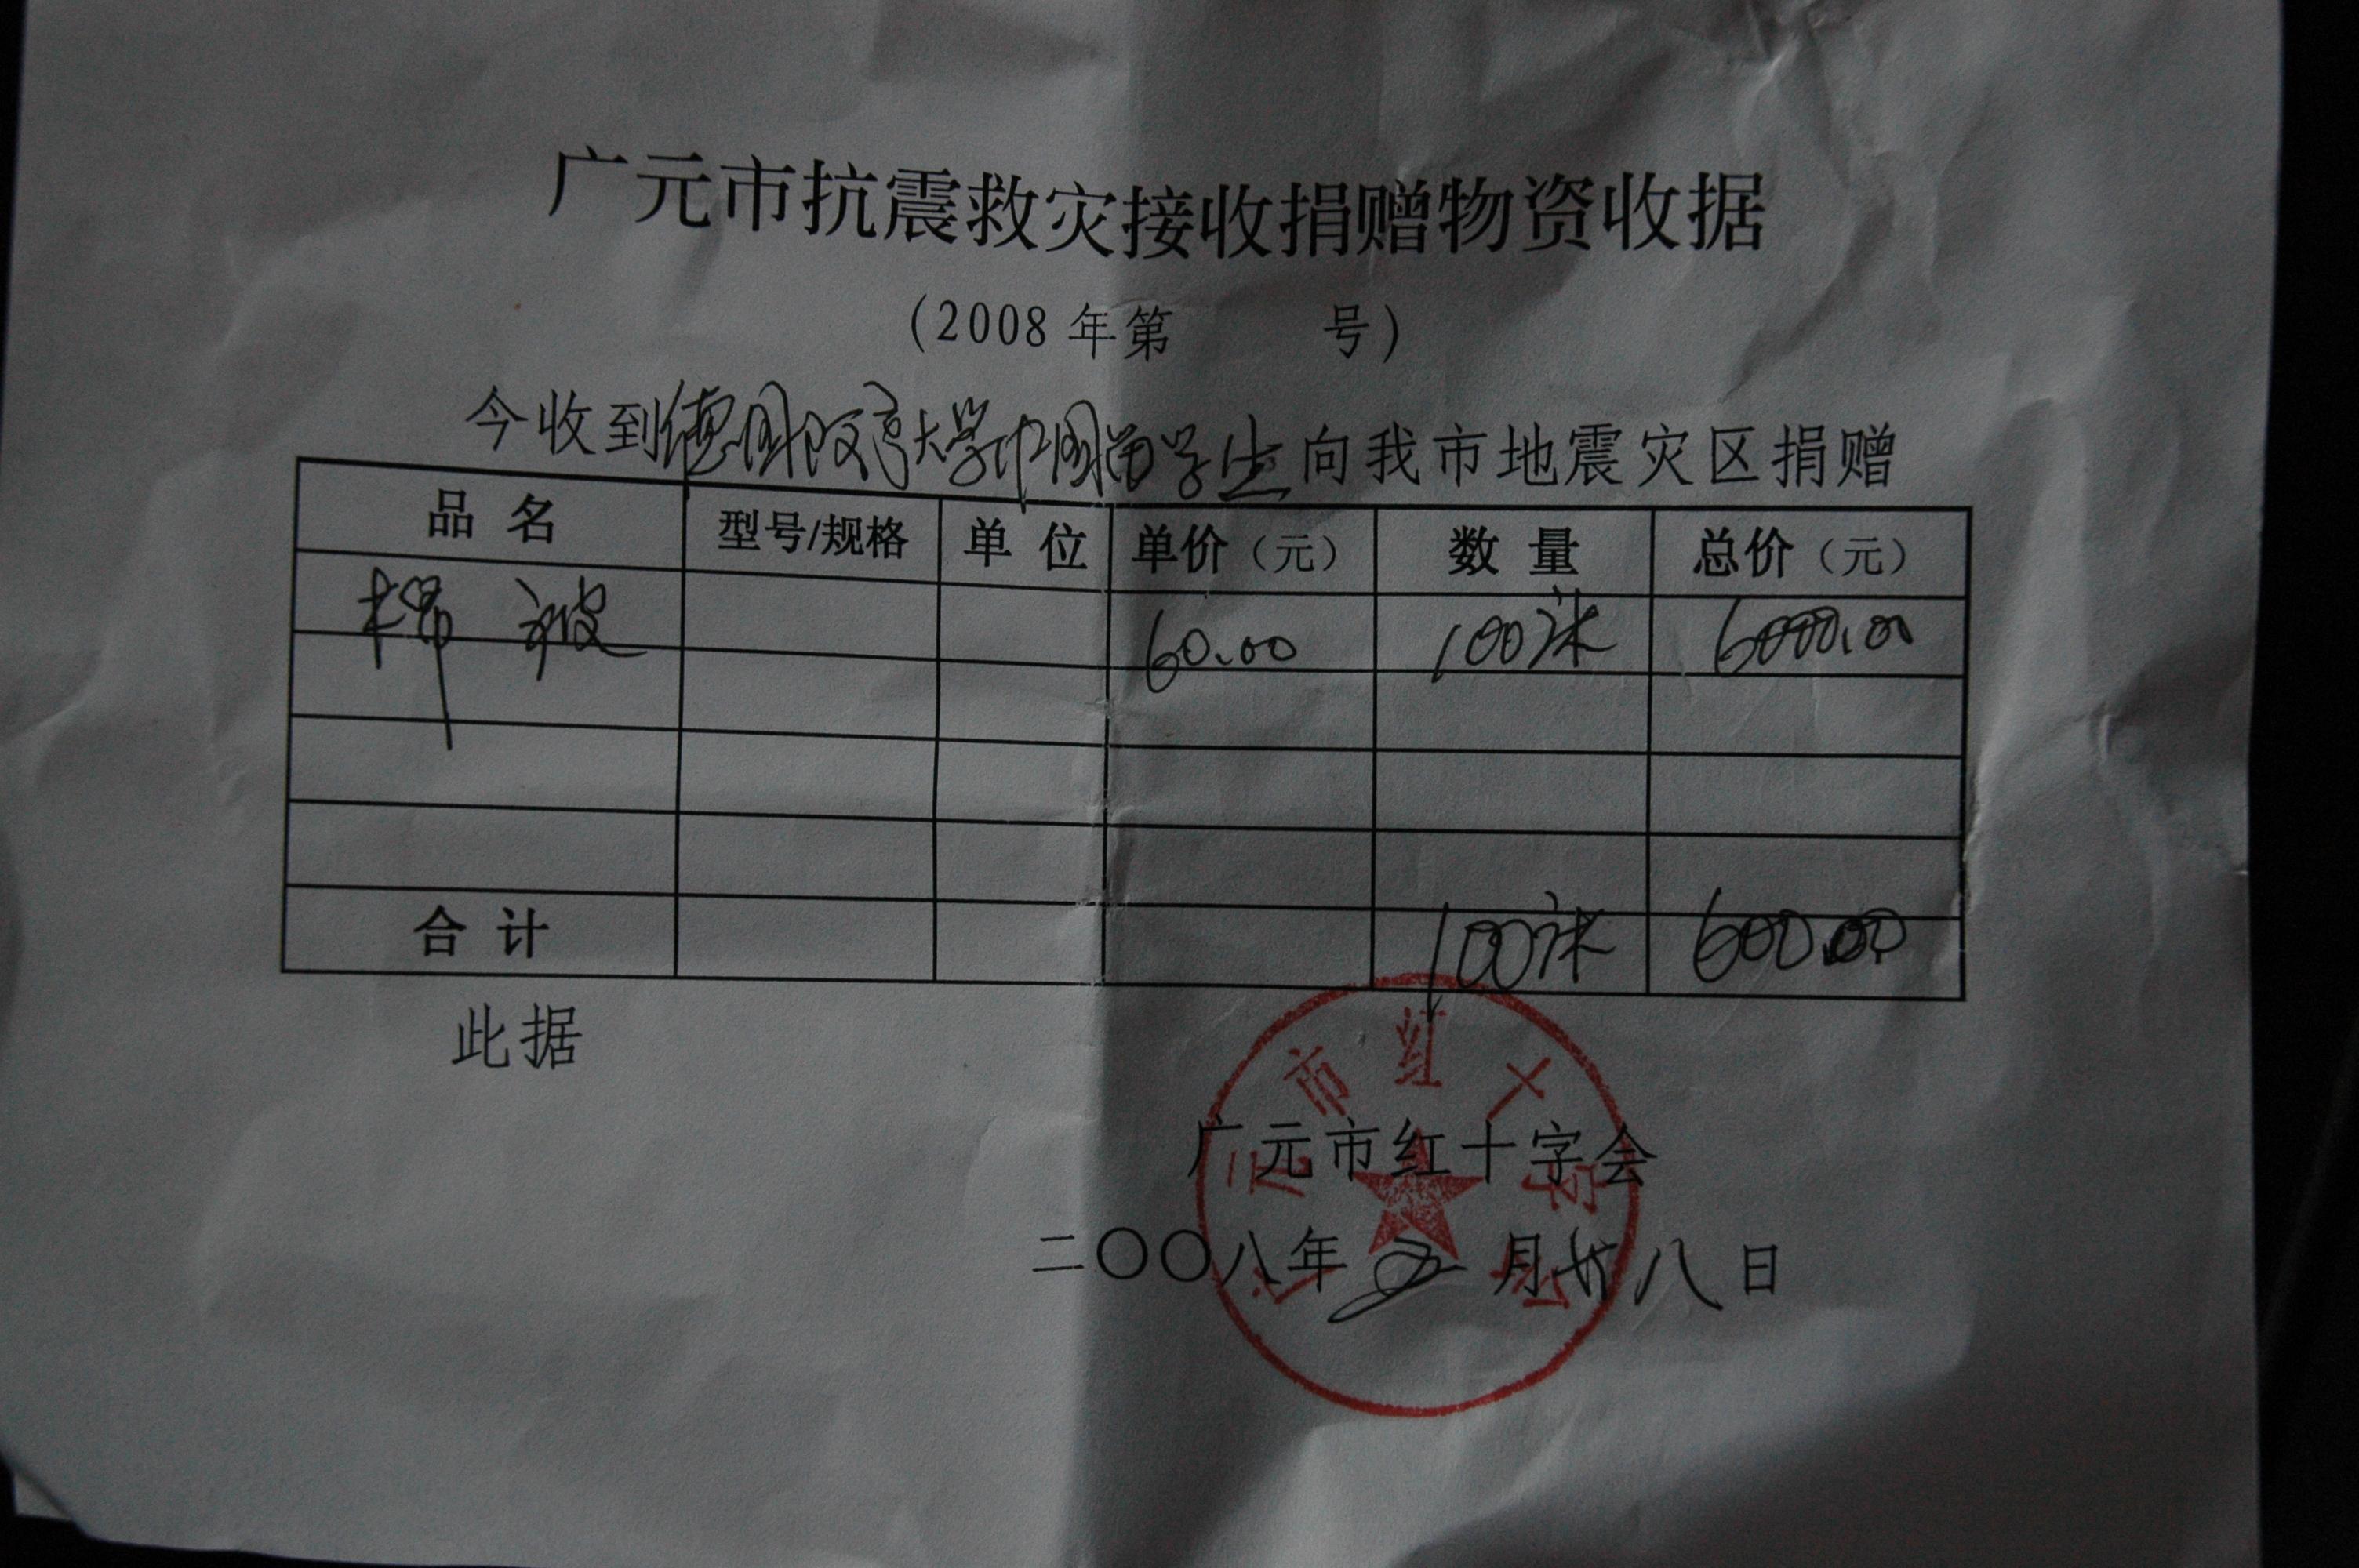 广元市抗震救灾接收捐赠物资收据
(2008年第 号)
今收到德国改亭大学中国留学生向我市地震灾区捐赠
品名 型号/规格 单位 单价(元) 数量 总价(元)
棉被 60.00 100床 6000.00
合计 100床 600.00
此据
广元市红十字会
广元市红十字会
二〇〇八年五月廿八日